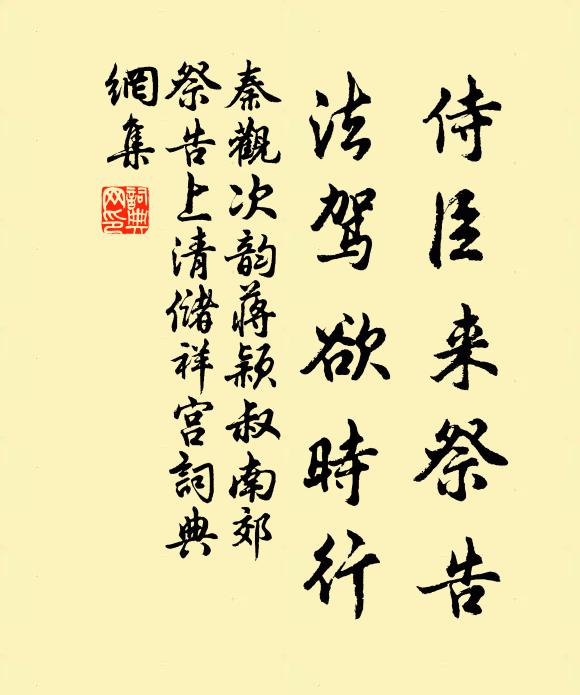 侍臣来祭告
法駕欲時行
秦觀次韵蔣穎叔南郊
祭告上清儲祥宫詞典
網集
詞典
网印